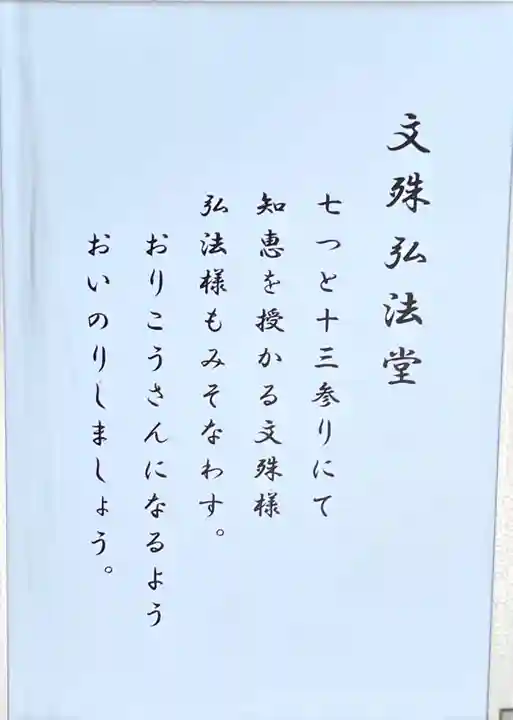 文殊弘法堂
七つと十三参りにて
知恵を授かる文殊様
弘法様もみそなわす。
おりこうさんになるよう
おいのりしましょう。